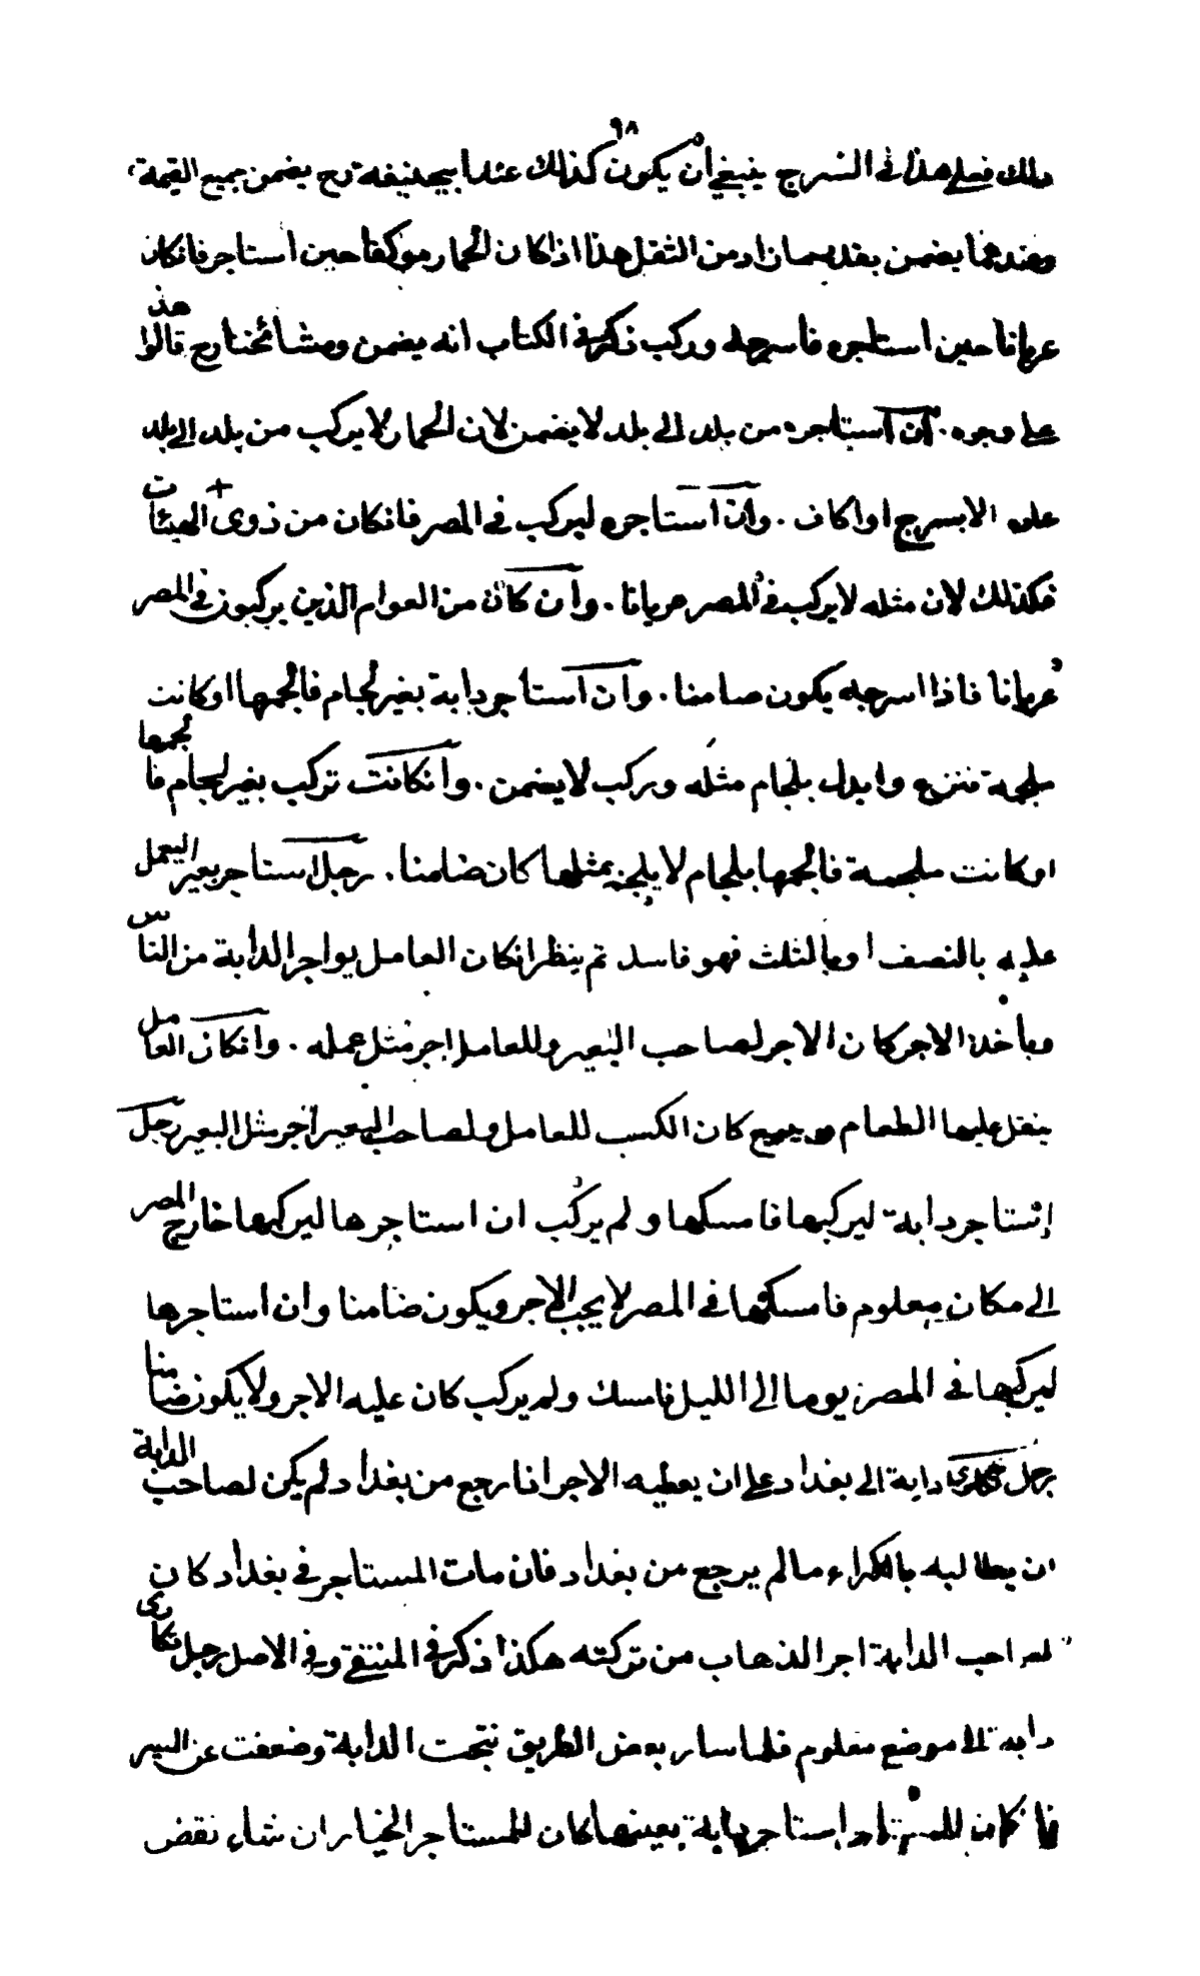 ٩٨
ذلك فعلى هذا في السرج ينبغي أن يكون كذلك عند ابيحنيفة رح يضمن جميع القيمة
وعندهما يضمن بقدر ما زاد من الثقل هذا اذا كان الحمار موكفا حين استاجر فانكان
عريانا حين استاجره فاسرجه وركب ذكر في الكتاب انه يضمن ومشائخنا رح قالوا هذ
على وجوه . ان استاجره من بلد الى بلد لا يضمن لان الحمار لا يركب من بلد الى بلد
عليه الا بسرج او اكاف . وان استاجره ليركب في المصر فانكان من ذوى الهيئات
فكذلك لان مثله لا يركب في المصر عريانا . وان كان من العوام الذين يركبون في المصر
عريانا فاذا اسرجه يكون ضامنا . وان استاجر دابة بغير لجام فالجمها او كانت
ملجمة فنزع وابدل بلجام مثله وركب لا يضمن . وانكانت تركب بغير لجام فالجمها
او كانت ملجمة فالجمها بلجام لا يلجم بمثلها كان ضامنا . رجل استاجر بعير اليعمل
عليه بالنصف او بالثلث فهو فاسد ثم ينظر انكان العامل يواجر الدابة من الناس
وياخذ الاجر كان الاجر لصاحب البعير وللعامل اجر مثل عمله . وانكان العامل
ينقل عليها الطعام ويبيع كان الكسب للعامل ولصاحب البعير اجر مثل البعير رجل
استاجر دابة ليركبها فامسكها ولم يركب ان استاجرها ليركبها خارج المصر
الى مكان معلوم فامسكها في المصر لا يجب الاجر ويكون ضامنا وان استاجرها
ليركبها في المصر يوما الى الليل فامسك ولم يركب كان عليه الاجر ولا يكون ضامنا
رجل تكارى دابة الى بغداد على ان يعطيه الاجر اذا رجع من بغداد لم يكن لصاحب الدابة
ان يطالبه بالكراء ما لم يرجع من بغداد فان مات المستاجر في بغداد كان
لصاحب الدابة اجر الذهاب من تركته هكذا ذكر في المنتقى وفي الاصل رجل تكارى
دابة الى موضع معلوم فلما سار بعض الطريق نتجت الدابة وضعفت عن السير
فانكان استاجر دابة بعينها كان للمستاجر الخيار ان شاء نقض